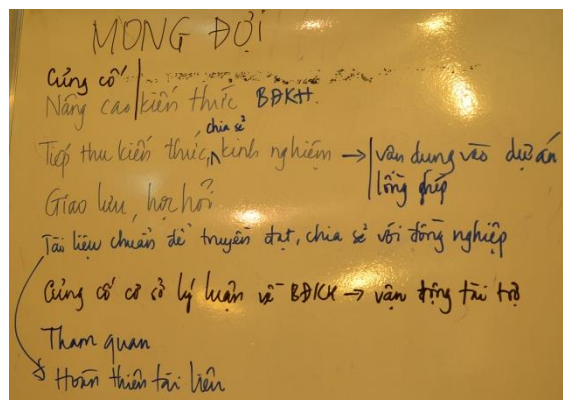 MONG ĐỢI
Củng cố
Nâng cao kiến thức BĐKH.
chia sẻ
Tiếp thu kiến thức, kinh nghiệm → vận dụng vào dự án
lồng ghép
Giao lưu, học hỏi
Tài liệu chuẩn để truyền đạt, chia sẻ với đồng nghiệp
Củng cố cơ sở lý luận về BĐKH → vận động tài trợ
Tham quan
Hoàn thiện tài liệu